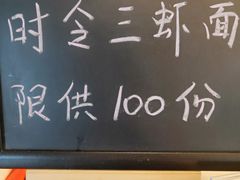 时令三虾面
限供100份